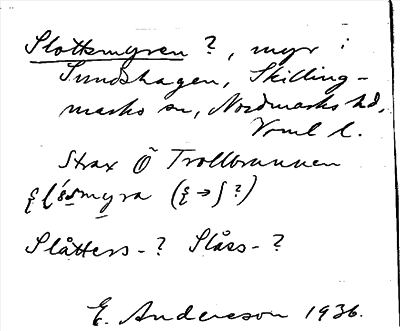 Slottsmyren ?, myr i
Sundshagen, Skilling-
marks sn, Nordmarks hd,
Vrml l.
Strax Ö Trollbrunnen
myra ( → ʃ ?)
Slåtters- ? Slåss- ?
E. Andersson 1936.